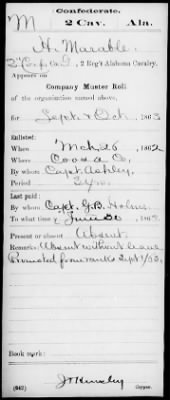 Confederate.
M 2 Cav. Ala.
H. Marable
2" Corp. Co. D, 2 Reg't Alabama Cavalry.
Appears on
Company Muster Roll
of the organization named above,
for Sept & Oct, 1863
Enlisted:
When Mch 26, 1862
Where Coosa Co.
By whom Capt. Ashley,
Period 2 yrs.
Last paid:
By whom Capt. G. B. Holmes
To what time June 30, 186
Present or absent Absent.
Remarks: Absent without leave
Promoted from ranks Sept 1/63.
Book mark:
(642) Copyist.